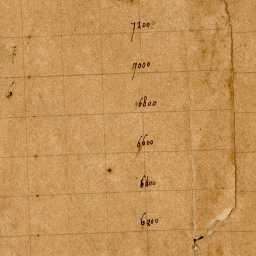 7200
7000
6800
6600
6400
6200